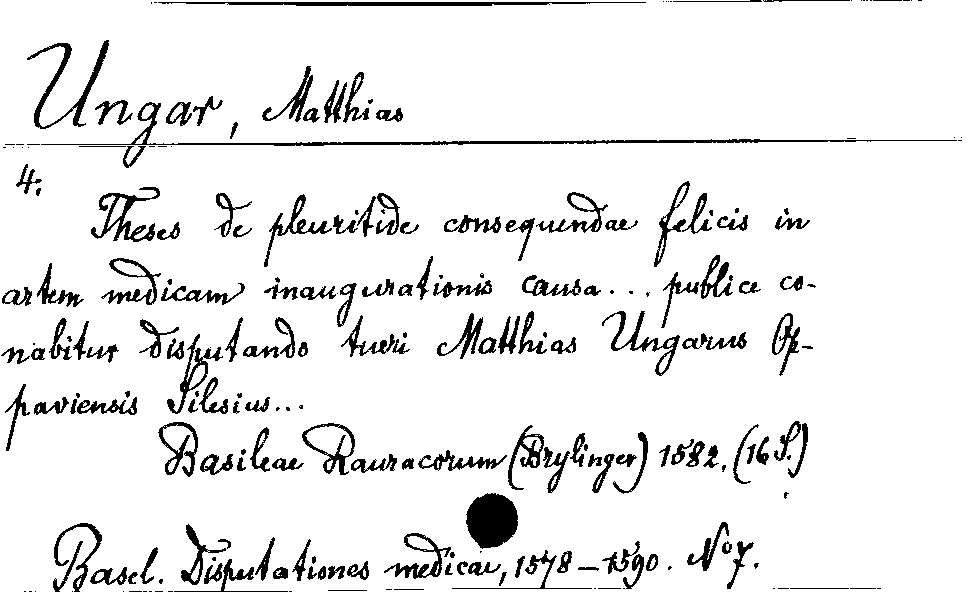 Ungar, Matthias
4.
Theses de pleuritide consequendae felicis in
artem medicam inaugurationis causa... publice co-
nabitur disputando tueri Matthias Ungarus Op-
paviensis Silesius...
Basileae Rauracorum (Brylinger) 1582. (16 S.)
Basel. Disputationes medicae, 1578 – 1590. No 7.